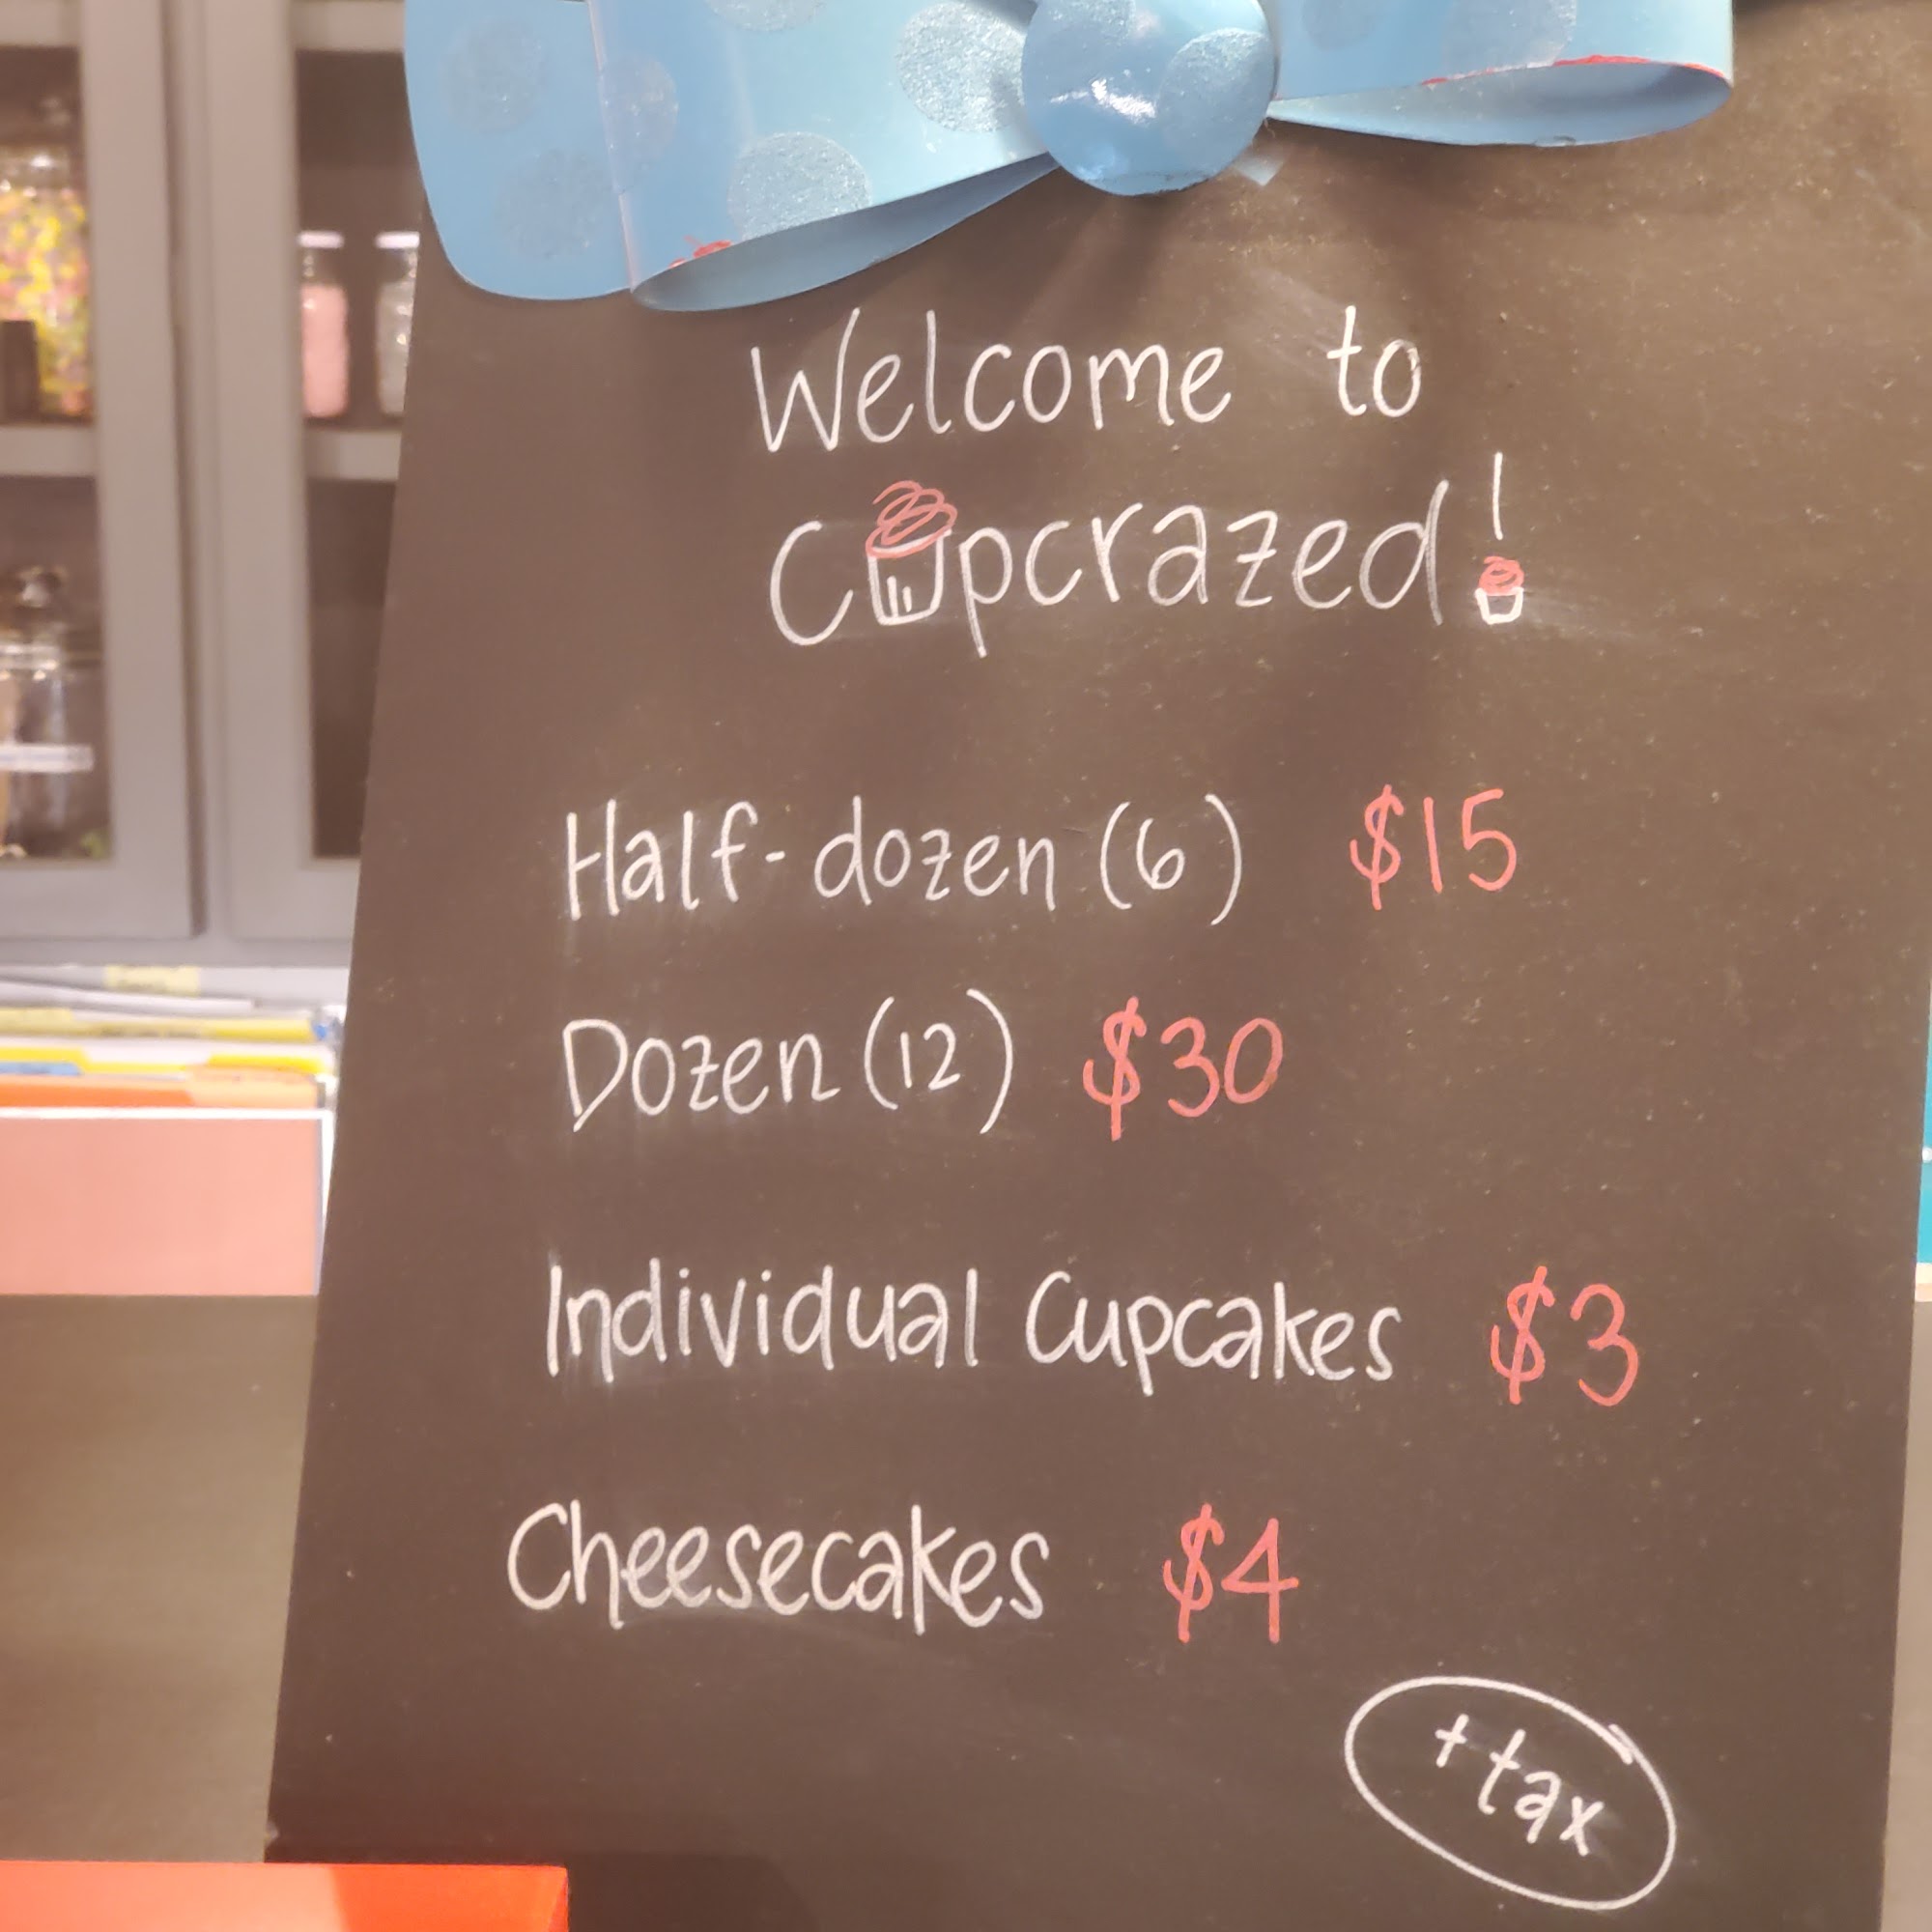 Welcome to
Cupcrazed!
Half-dozen (6) $15
Dozen (12) $30
Individual Cupcakes $3
Cheesecakes $4
+ tax